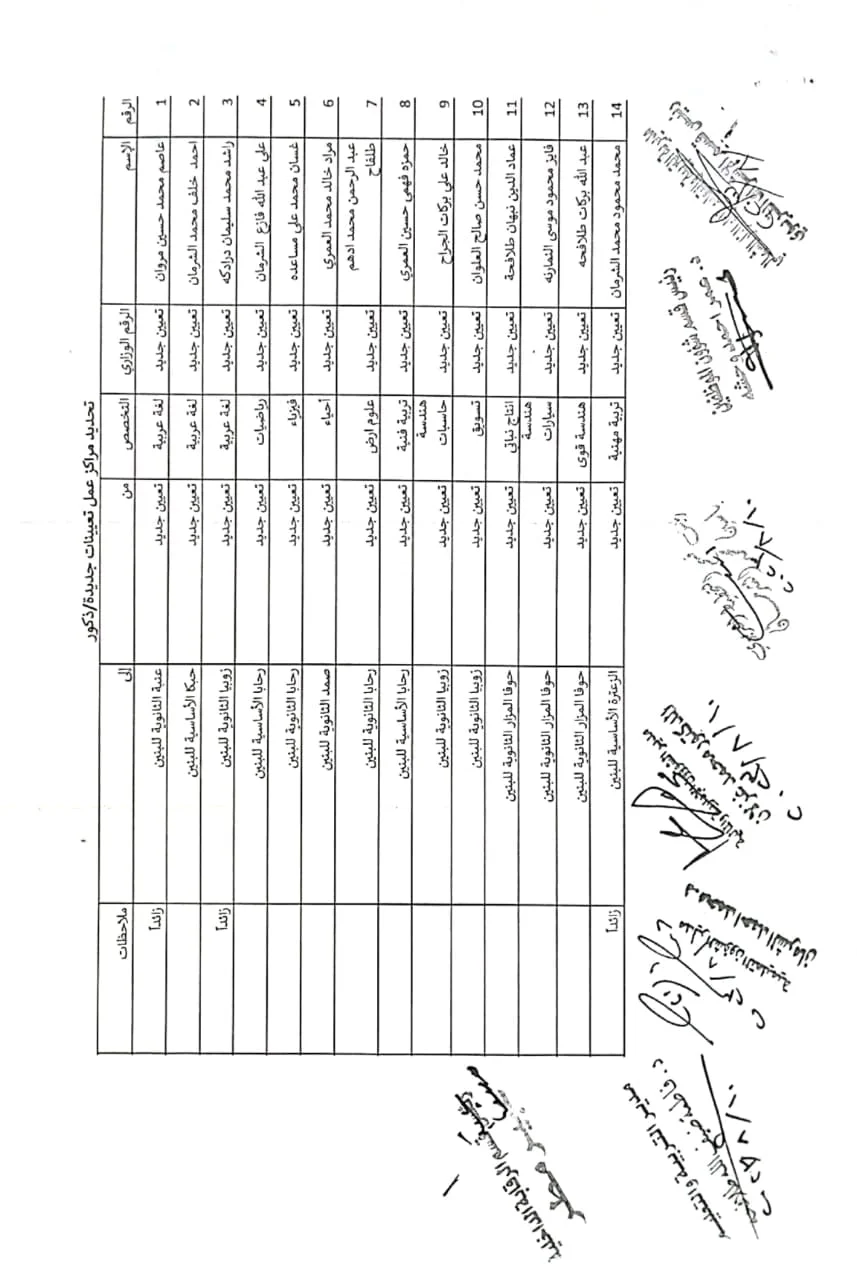 تحديد مراكز عمل تعيينات جديدة/ذكور
الرقم الإسم الرقم الوزاري التخصص من إلى ملاحظات
1 عاصم محمد حسين مروان تعيين جديد لغة عربية تعيين جديد عنبة الثانوية للبنين زائداً
2 احمد خلف محمد الشرمان تعيين جديد لغة عربية تعيين جديد حبكا الأساسية للبنين
3 راشد محمد سليمان درادكه تعيين جديد لغة عربية تعيين جديد زوبيا الثانوية للبنين زائداً
4 علي عبد الله فازع الشرمان تعيين جديد رياضيات تعيين جديد رحابا الأساسية للبنين
5 غسان محمد علي مساعده تعيين جديد فيزياء تعيين جديد رحابا الثانوية للبنين
6 مراد خالد محمد العمري تعيين جديد أحياء تعيين جديد صمد الثانوية للبنين
7 عبد الرحمن محمد ادهم
طلفاح تعيين جديد علوم ارض تعيين جديد رحابا الثانوية للبنين
8 حمزه فهمي حسين العمري تعيين جديد تربية فنية تعيين جديد رحابا الأساسية للبنين
9 خالد علي بركات الجراح تعيين جديد هندسة
حاسبات تعيين جديد زوبيا الثانوية للبنين
10 محمد حسن صالح العلوان تعيين جديد تسويق تعيين جديد زوبيا الثانوية للبنين
11 عماد الدين نبهان طلافحة تعيين جديد انتاج نباتي تعيين جديد حوفا المزار الثانوية للبنين
12 فايز محمود موسى النمارنه تعيين جديد هندسة
سيارات تعيين جديد حوفا المزار الثانوية للبنين
13 عبد الله بركات طلافحه تعيين جديد هندسة قوى تعيين جديد حوفا المزار الثانوية للبنين
14 محمد محمود محمد الشرمان تعيين جديد تربية مهنية تعيين جديد الزعترة الأساسية للبنين زائداً
رئيس قسم شؤون الموظفين
د. عمر احمد
مدير الشؤون الإدارية والمالية
الدكتور محمد غزلان
مدير الشؤون التعليمية
د. محمد احمد الشرمان
رئيس قسم الرقابة الداخلية
مدير التربية والتعليم